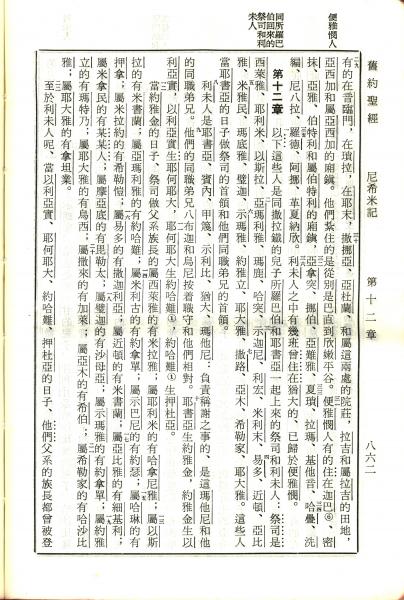 舊約聖經　尼希米記　第十二章　八六二
便雅憫人
同所羅巴伯回來的祭司和利未人
有的在音臨門，在瑣拉，在耶末，撒挪亞、亞杜蘭、和屬這兩處的院莊，拉吉和屬拉吉的田地，
亞西加和屬亞西加的廂鎮。他們紮住的是從別是巴直到欣嫩平谷。便雅憫人有的住在迦巴⑥、密
抹、亞雅、伯特利和屬伯特利的廂鎮，亞拿突、挪伯、亞難雅、夏瑣、拉瑪、基他音、哈疊、洗
編、尼八拉、羅德、阿挪、革夏納欣。利未人之中有幾班曾住在猶大的、已歸於便雅憫。
第十二章　以下這些人是同撒拉鐵的兒子所羅巴伯和耶書亞一起上來的祭司和利未人：祭司是
西萊雅、耶利米、以斯拉、亞瑪利雅、瑪鹿、哈突、示迦尼、利宏、米利末、易多、近頓、亞比
雅、米雅民、瑪底雅、璧迦、示瑪雅、約雅立、耶大雅、撒路、亞木、希勒家、耶大雅。這些人
當耶書亞的日子做祭司的首領和他們同職弟兄的首領。
利未人是耶書亞、賓內、甲篾、示利比、猶大、瑪他尼；負責稱謝之事的、是這瑪他尼和他
的同職弟兄。他們的同職弟兄八布迦和烏尼按着職守和他們相對。耶書亞生約雅金，約雅金生以
利亞實，以利亞實生耶何耶大，耶何耶大生約哈難①，約哈難①生押杜亞。
當約雅金的日子、祭司做父系族長的屬西萊雅的有米拉雅；屬耶利米的有哈拿尼雅；屬以斯
拉的有米書蘭；屬亞瑪利雅的有約哈難；屬米利古的有約拿單；屬示巴尼的有約瑟；屬哈琳的有
押拿；屬米拉約的有希勒愷；屬易多的有撒迦利亞；屬近頓的有米書蘭；屬亞比雅的有細基利；
屬米拿民的有某某人；屬摩亞底的有毘勒太；屬璧迦的有沙母亞；屬示瑪雅的有約拿單；屬約雅
立的有瑪特乃；屬耶大雅的有烏西；屬撒來的有加萊；屬亞木的有希伯，屬希勒家的有哈沙比
雅；屬耶大雅的有拿坦業。
至於利未人呢、當以利亞實、耶何耶大、約哈難、押杜亞的日子、他們父系的族長都曾被登